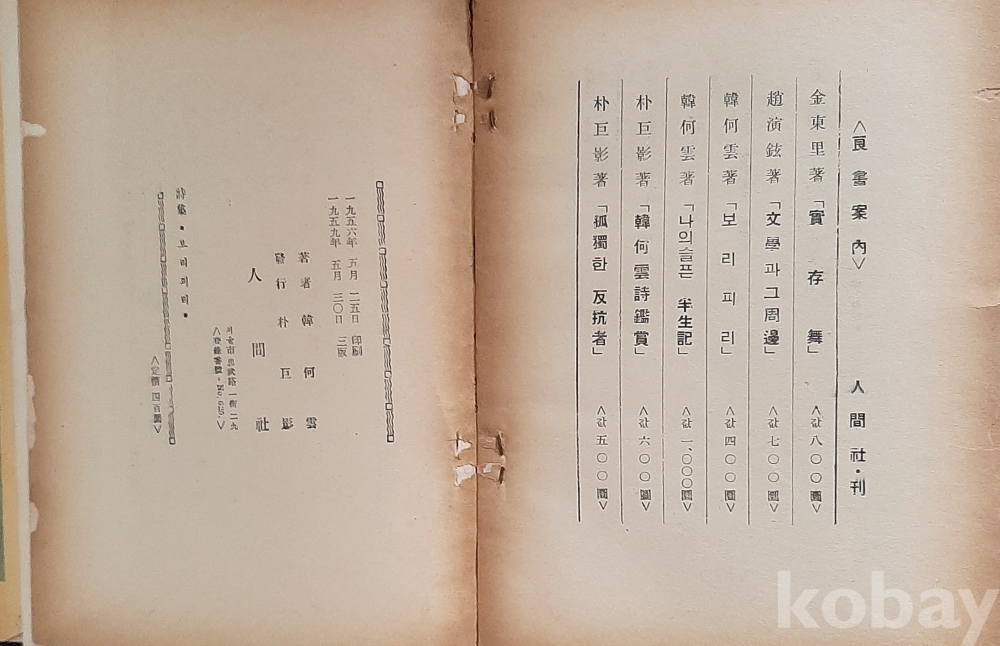 <良書案內> 人間社·刊
金東里著「實存舞」 <값八〇〇圜>
趙演鉉著「文學과그周邊」 <값七〇〇圜>
韓何雲著「보리피리」 <값四〇〇圜>
韓何雲著「나의슬픈半生記」 <값一、〇〇〇圜>
朴巨影著「韓何雲詩鑑賞」 <값六〇〇圜>
朴巨影著「孤獨한 反抗者」 <값五〇〇圜>
一九五六年 五月 二五日 印刷
一九五九年 五月 三〇日 三版
著者 韓何雲
發行 朴巨影
人間社
서울市忠武路一街二九
<登錄番號·No.>
<定價四百圜>
詩集·보리피리·
kobay